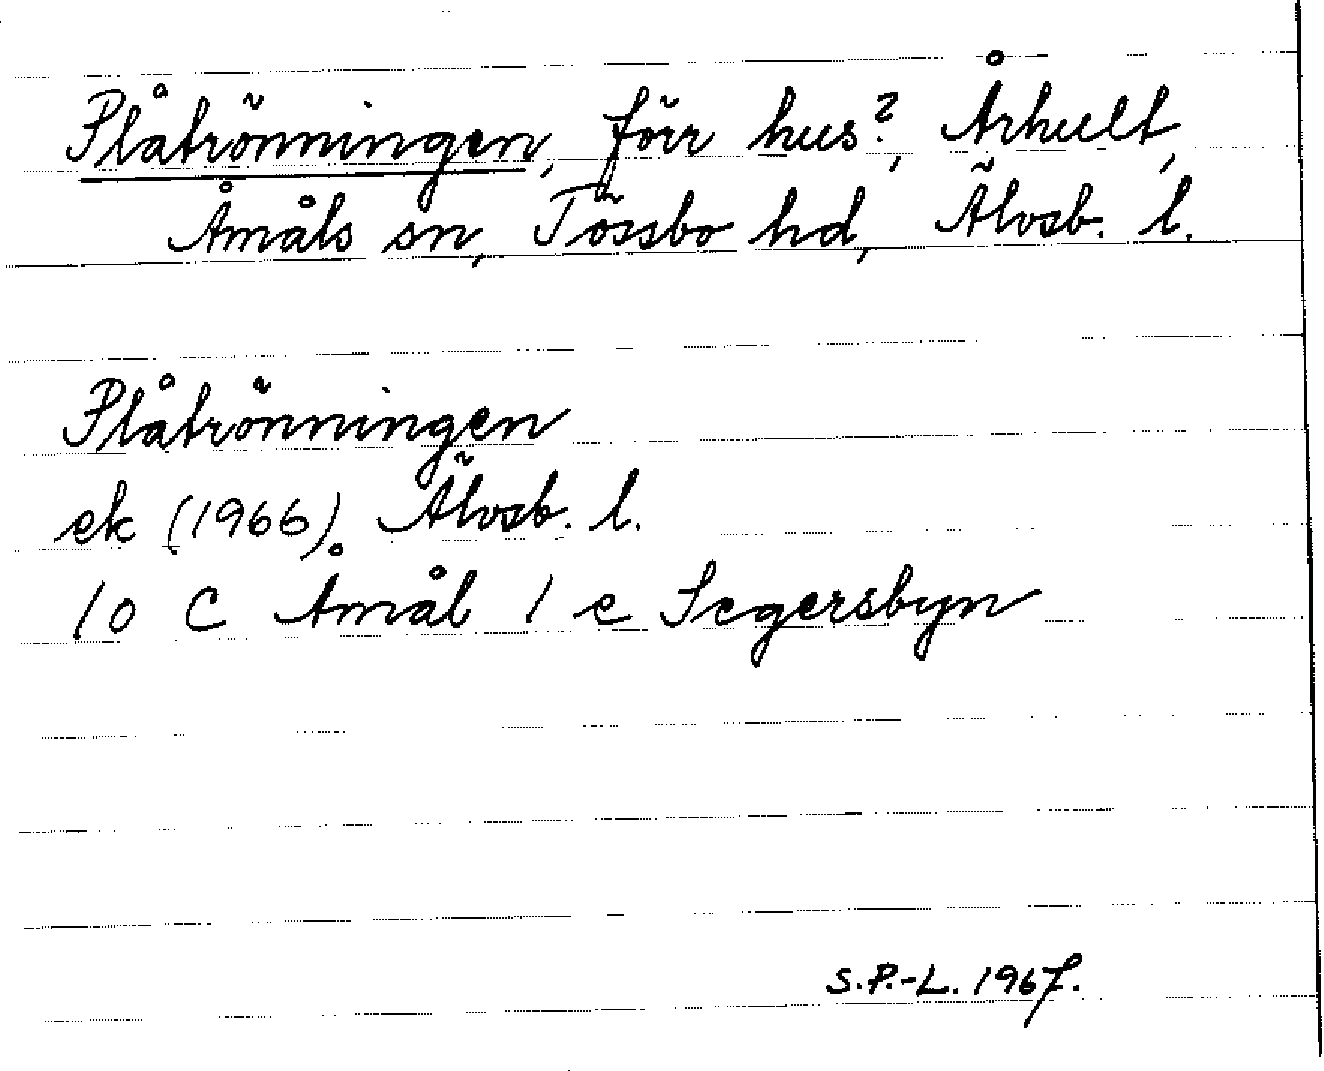 Plåtrönningen, förr hus?, Århult,
Åmåls sn, Tössbo hd, Älvsb. l.
Plåtrönningen
ek (1966) Älvsb. l.
10 C Åmål 1 e Segersbyn
S.P.-L. 1967.